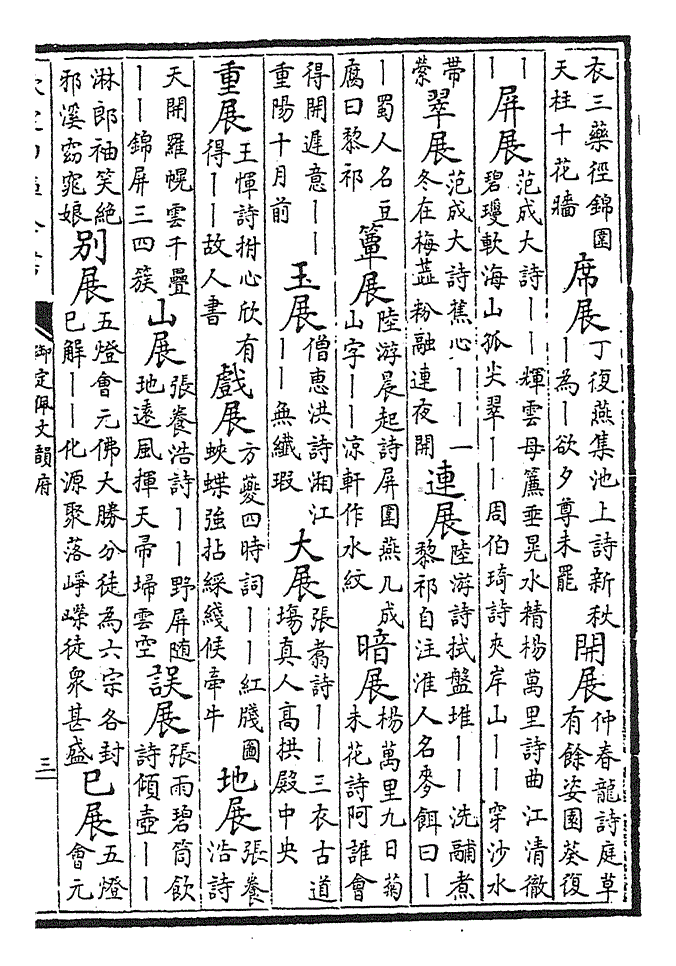 衣三藥徑錦圍
天柱十花牆
席展
丁復燕集池上詩新秋
丨為丨欲夕尊未罷
開展
仲春龍詩庭草
有餘姿園葵復
丨
丨
屏展
范成大詩丨丨輝雲母簾垂晃水精楊萬里詩曲江清徹
碧瓊軟海山孤尖翠丨丨周伯琦詩夾岸山丨丨穿沙水
帶
縈
翠展
范成大詩蕉心丨丨一
冬在梅蕋粉融連夜開
連展
陸游詩拭盤堆丨丨洗鬴煮
黎祁自注淮人名麥餌曰丨
丨蜀人名豆
腐曰黎祁
簟展
陸游晨起詩屏圍燕几成
山字丨丨涼軒作水紋
暗展
楊萬里九日菊
未花詩阿誰會
得開遲意丨丨
重陽十月前
玉展
僧惠洪詩湘江
丨丨無纖瑕
大展
張翥詩丨丨三衣古道
塲真人高拱殿中央
重展
王惲詩拊心欣有
得丨丨故人書
戲展
方夔四時詞丨丨紅牋圖
蛺蝶強拈綵綫候牽牛
地展
張養
浩詩
天開羅幌雲千疊
丨丨錦屏三四簇
山展
張養浩詩丨丨野屏随
地遠風揮天帚埽雲空
誤展
張雨碧筒飲
詩傾壺丨丨
淋郎袖笑絶
邪溪窈窕娘
别展
五燈會元佛大勝分徒為六宗各封
已解丨丨化源聚落崢嶸徒衆甚盛
已展
五燈
會元
御定佩文韻府
三